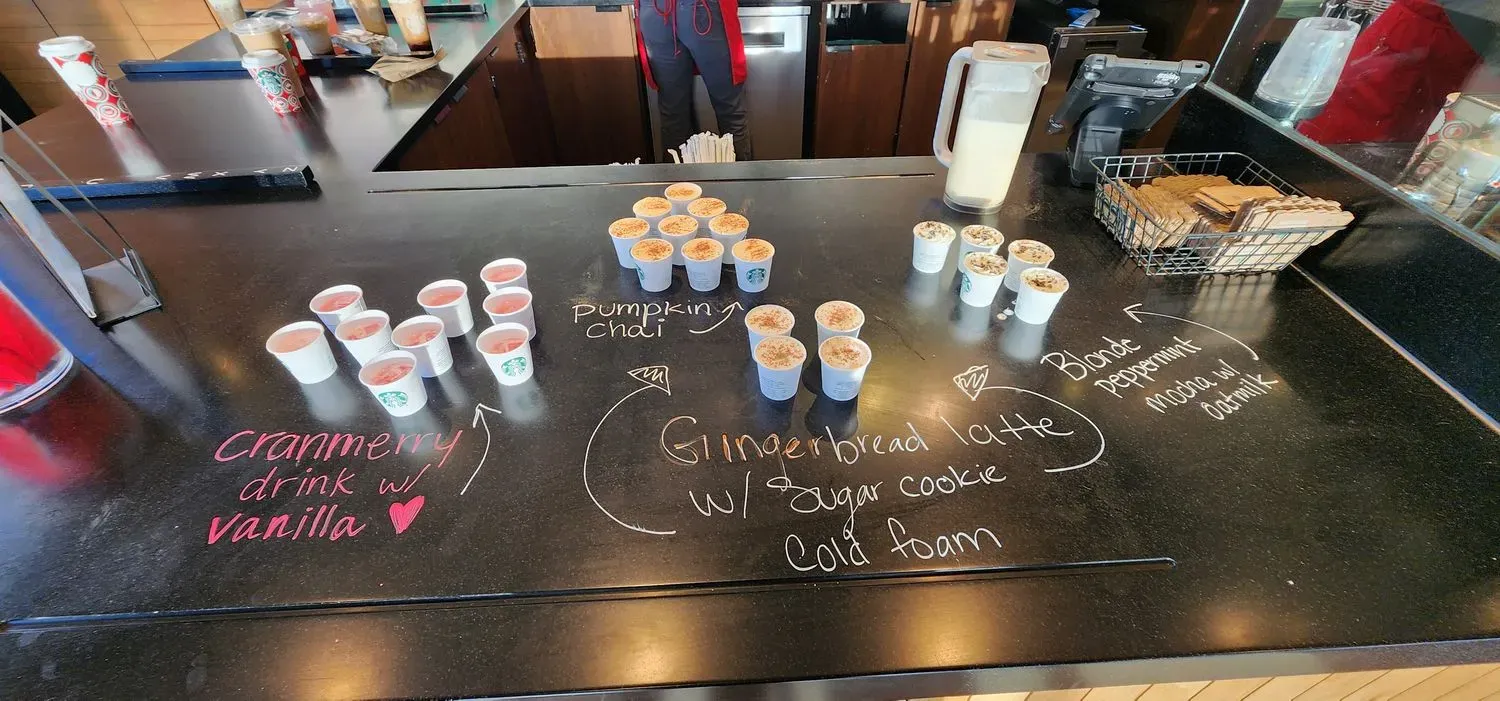 pumpkin
chai
Blonde
peppermint
mocha w/
oatmilk
Cranmerry
drink w/
vanilla
Gingerbread latte
w/ Sugar cookie
Cold foam